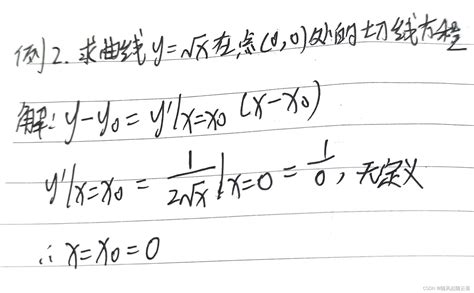 例2. 求曲线 y=√x 在点(0,0)处的切线方程
解: y-y₀ = y'|x=x₀ (x-x₀)
y'|x=x₀ = 1/(2√x)|x=0 = 1/0, 无定义
∴ x=x₀=0